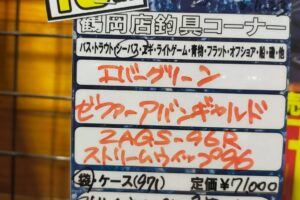 鶴岡店釣具コーナー
バス・トラウト・シーバス・エギ・ライトゲーム・青物・フラット・オフショア・船・磯・他
エバーグリーン
ゼファーアバンギャルド
ZAGS-96R
ストリームウィップ96
袋 ケース(971) 定価¥71,000